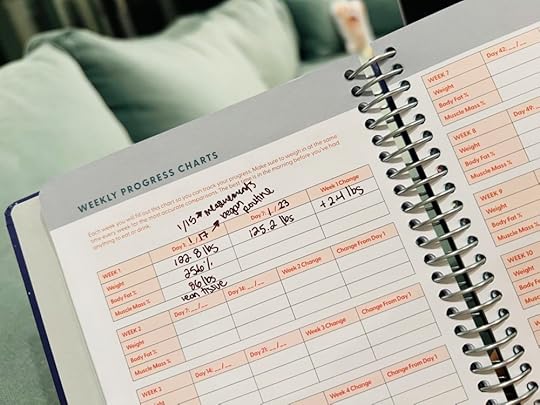 WEEKLY PROGRESS CHARTS
Each week you will fill out this chart so you can track your progress. Make sure to weigh in at the same
time every week for the most accurate comparisons. The best time is in the morning before you've had
anything to eat or drink.
1/15 → measurements
began routine
WEEK 1 Day 1: 1/17 Day 7: 1/23 Week 1 Change
Weight 122.8 lbs 125.2 lbs +2.4 lbs
Body Fat % 25.6%
Muscle Mass % 86 lbs
lean tissue
WEEK 2 Day 7: __/__ Day 14: __/__ Week 2 Change Change From Day 1
Weight
Body Fat %
Muscle Mass %
WEEK 3 Day 14: __/__ Day 21: __/__ Week 3 Change Change From Day 1
Week 4 Change Change From Day 1
WEEK 7 Day 42: __/__
Weight
Body Fat %
Muscle Mass %
WEEK 8 Day 49:
Weight
Body Fat %
Muscle Mass %
WEEK 9
Weight
Body Fat %
Muscle Mass %
WEEK 10
Weight
Body Fat %